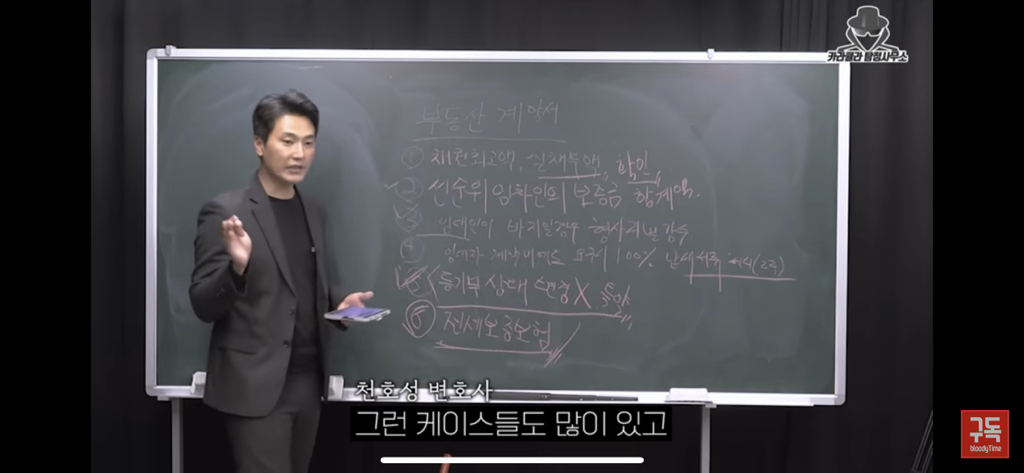 카라큘라 탐정사무소
부동산 계약서
① 채권최고액, 실채무액, 확인
② 선순위 임차인의 보증금 합계액.
③ 임대인이 바지일경우 형사처벌 감수
④ 100%
⑤ 등기부 상태 변경 X 특약
⑥ 전세보증보험
천호성 변호사
그런 케이스들도 많이 있고
구독
bloodyTime